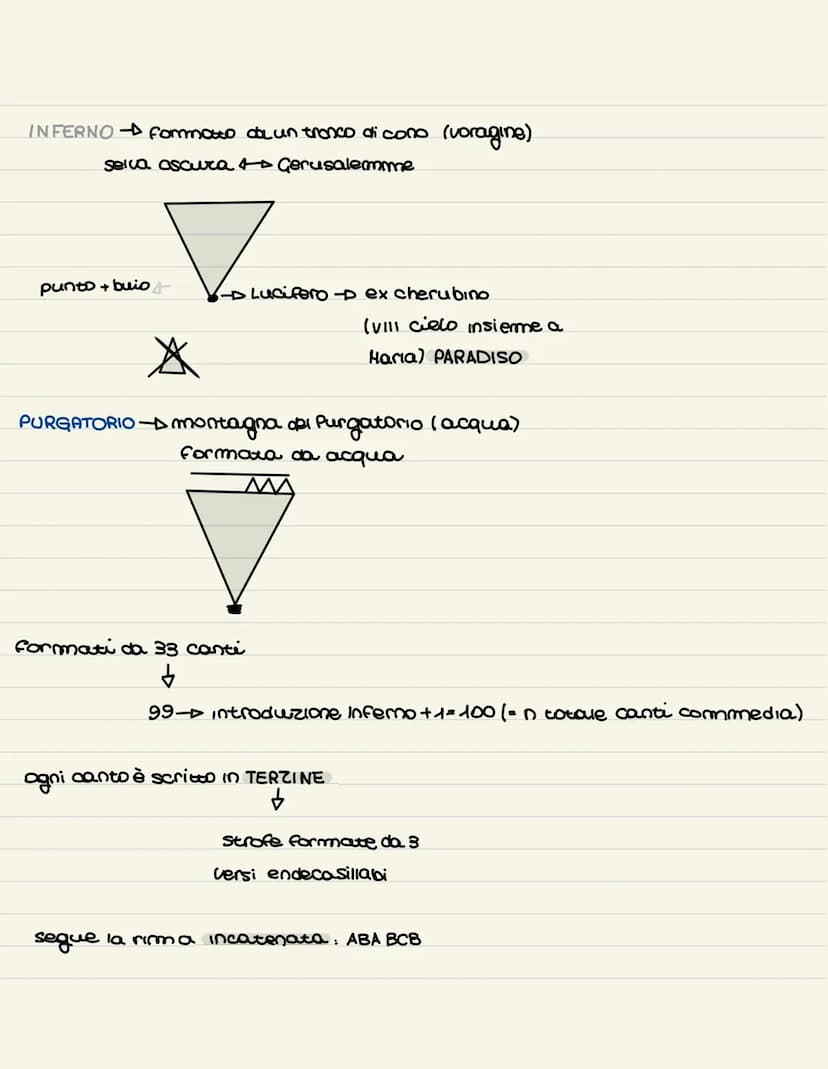 INFERNO → formato da un tronco di cono (voragine)
selva oscura ↔ Gerusalemme
punto + buio ←
→ Lucifero → ex cherubino
(VIII cielo insieme a
Maria) PARADISO
PURGATORIO → montagna del Purgatorio (acqua)
formata da acqua
formati da 33 canti
↓
99 → introduzione Inferno + 1 = 100 (= n totale canti commedia)
ogni canto è scritto in TERZINE
↓
strofe formate da 3
versi endecasillabi
segue la rima incatenata: ABA BCB